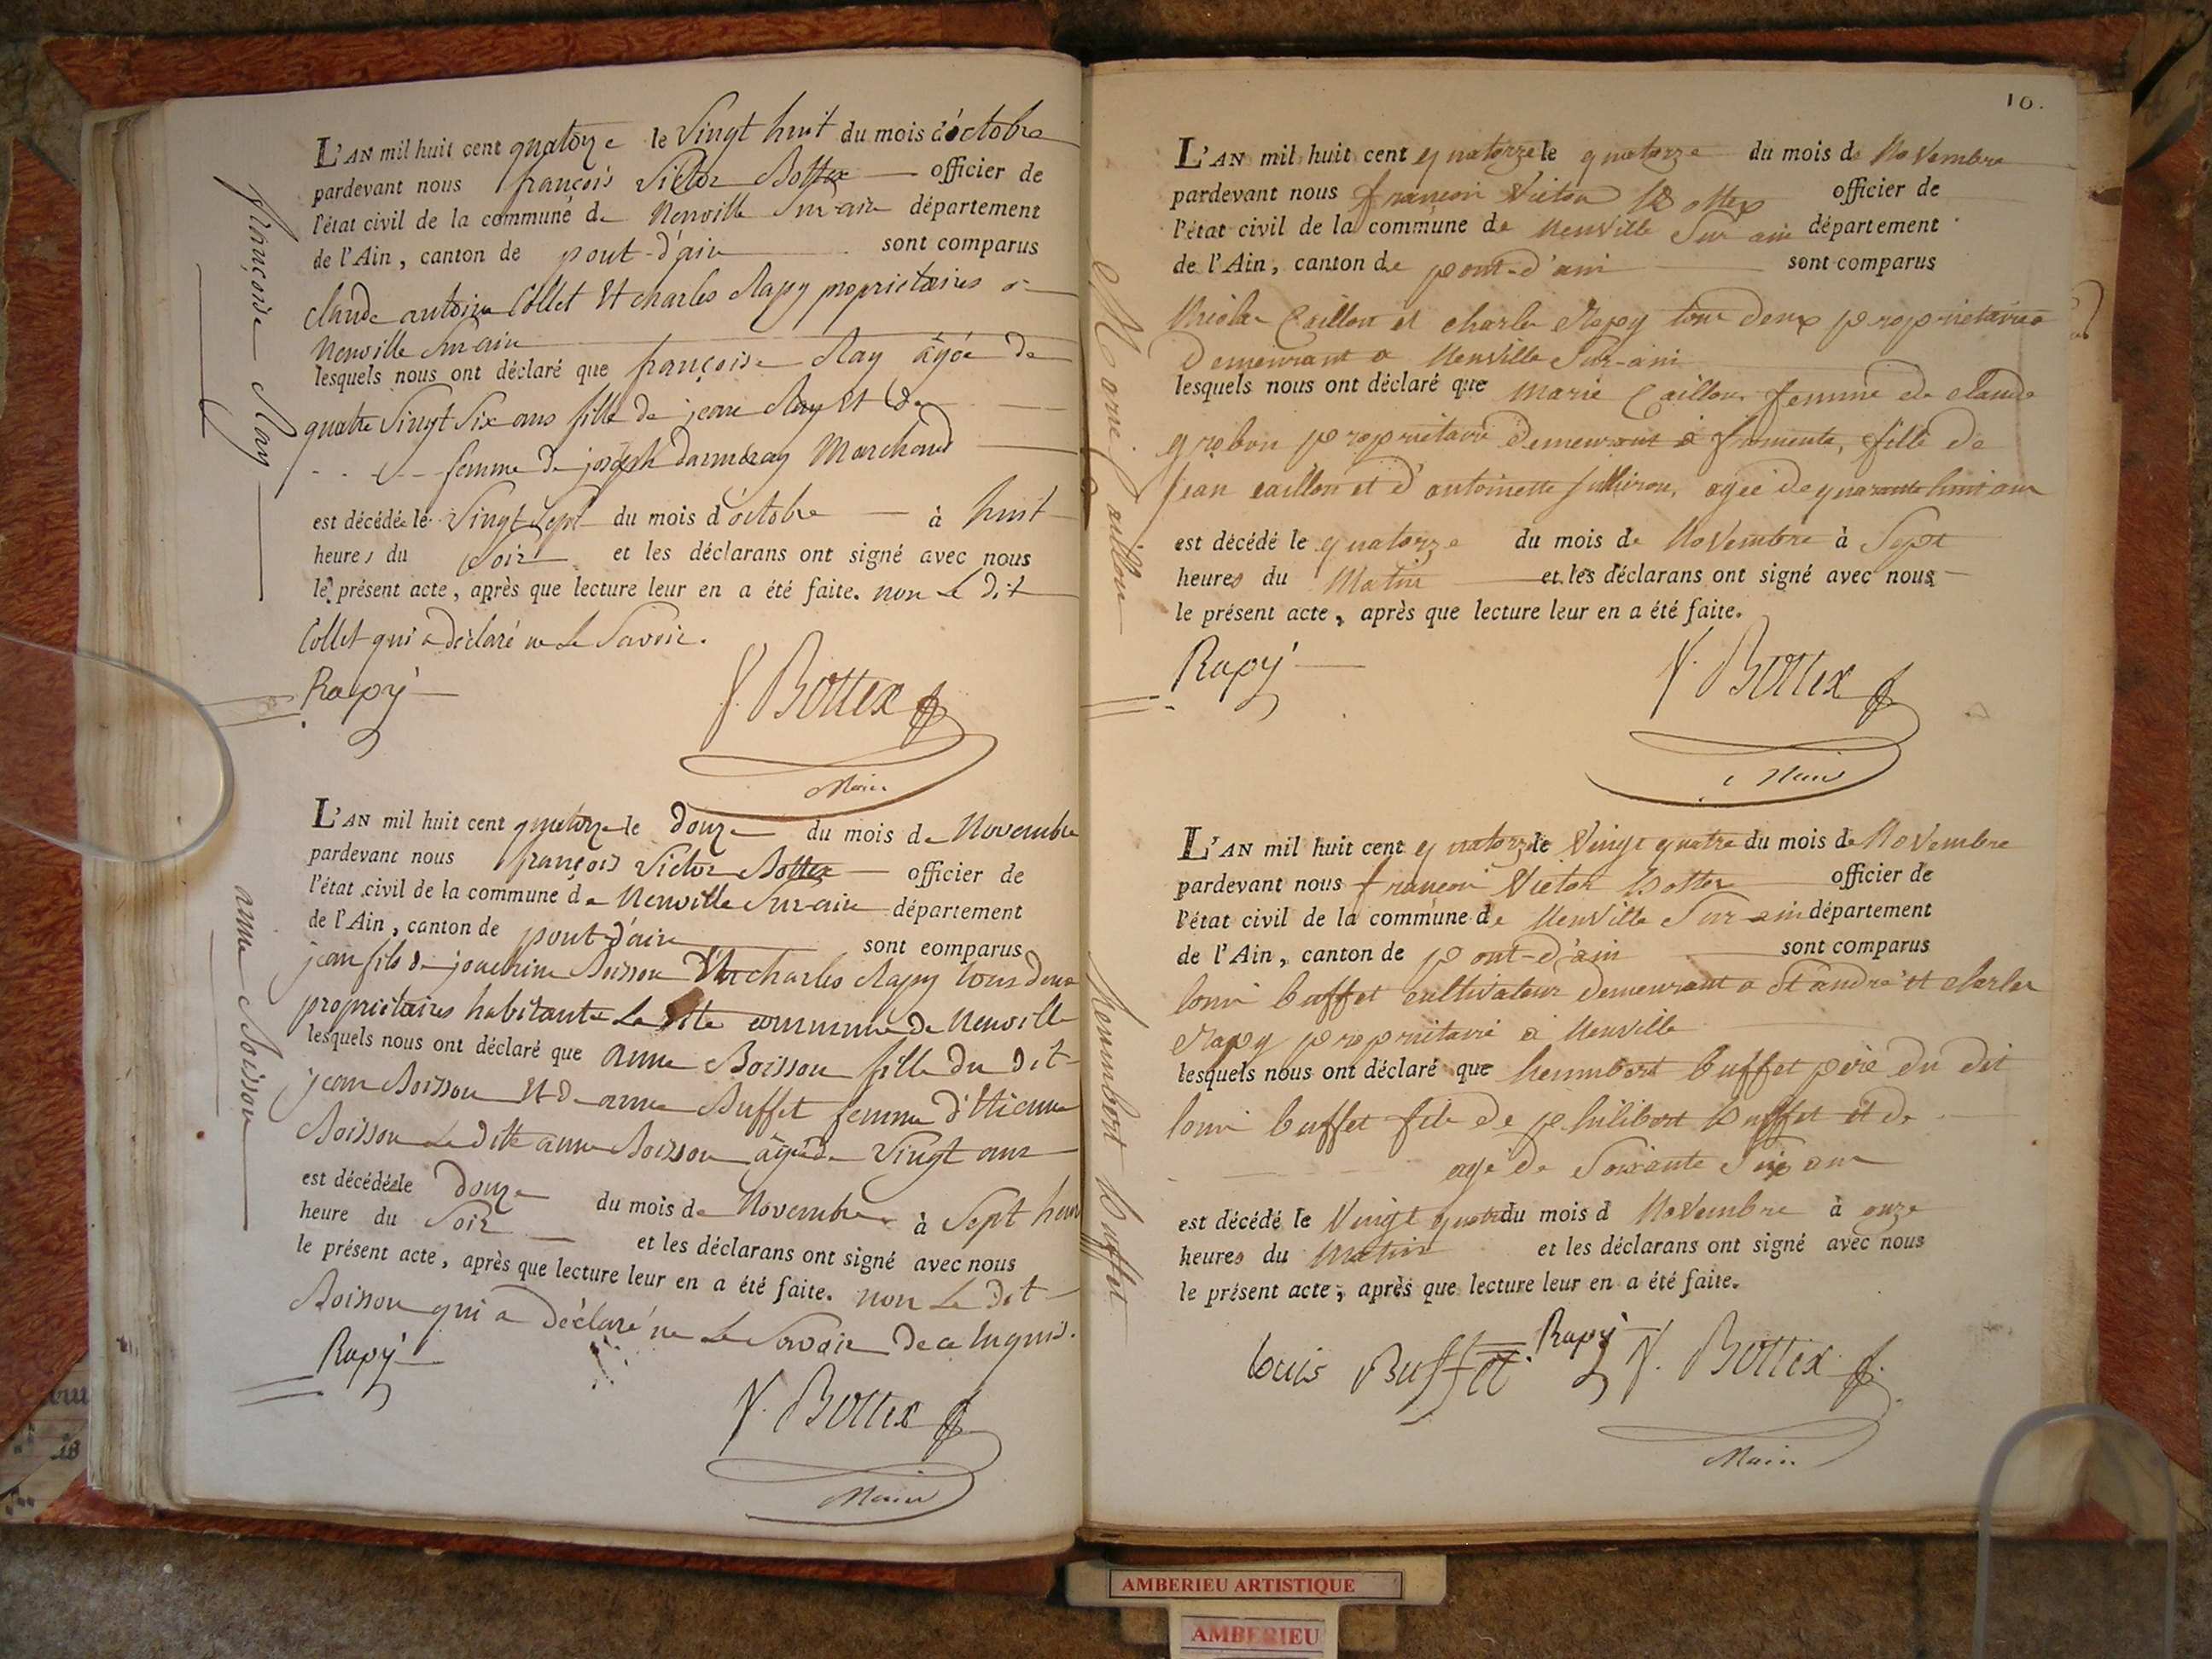 L'AN mil huit cent quatorze le Vingt huit du mois d'octobre
pardevant nous françois Victor Bottex officier de
l'état civil de la commune de Neuville Sur-ain département
de l'Ain, canton de pont-d'ain sont comparus
claude antoine Collet Et charles Rapy proprietaires a
Neuville Sur-ain
lesquels nous ont déclaré que françoise Ray âgée de
quatre Vingt Six ans fille de jean Ray Et de
femme de joseph Marchand
est décédée le Vingt Sept du mois d'octobre à huit
heures du Soir et les déclarans ont signé avec nous
le présent acte, après que lecture leur en a été faite. non Le Dit
Collet qui a déclaré ne Le Savoir.
Rapy V. Bottex
Maire
françoise Ray
L'AN mil huit cent quatorze le Douze du mois de Novembre
pardevant nous françois Victor Bottex officier de
l'état civil de la commune de Neuville Sur-ain département
de l'Ain, canton de pont-d'ain sont comparus
jean fils de Boisson Et charles Rapy tous deux
proprietaires habitants La Dite commune de Neuville
lesquels nous ont déclaré que anne Boisson fille du Dit
jean Boisson Et De anne Buffet femme d'Etienne
Boisson La ditte anne Boisson âgée de Vingt ans
est décédée le Douze du mois de Novembre à Sept heur
heure du Soir et les déclarans ont signé avec nous
le présent acte, après que lecture leur en a été faite. non Le Dit
Boisson qui a Déclaré ne Le Savoir De ce Enquis.
Rapy V. Bottex
Maire
anne Boisson
10.
L'AN mil huit cent quatorze le quatorze du mois de Novembre
pardevant nous françois Victor Bottex officier de
l'état civil de la commune de Neuville Sur ain département
de l'Ain, canton de pont-d'ain sont comparus
Caillon et charles Rapy tous deux proprietaires
Demeurant a Neuville Sur-ain
lesquels nous ont déclaré que marie Caillon femme de claude
grobon proprietaire Demeurant a fromente, fille de
jean caillon et d'antoinette agée de quarante huit ans
est décédé le quatorze du mois de Novembre à Sept
heures du Matin et les déclarans ont signé avec nous
le présent acte, après que lecture leur en a été faite.
Rapy V. Bottex
Maire
Marie Caillon
L'AN mil huit cent quatorze le Vingt quatre du mois de Novembre
pardevant nous françois Victor Bottex officier de
l'état civil de la commune de Neuville Sur-ain département
de l'Ain, canton de pont-d'ain sont comparus
louis buffet cultivateur Demeurant a St andré et charles
Rapy proprietaire a Neuville
lesquels nous ont déclaré que heumbert buffet pere du dit
louis buffet fils de philibert buffet et de
agé de Soixante Six ans
est décédé le Vingt quatre du mois d Novembre à onze
heures du Matin et les déclarans ont signé avec nous
le présent acte; après que lecture leur en a été faite.
louis Buffet Rapy V. Bottex
Maire
heumbert Buffet
AMBERIEU ARTISTIQUE
AMBERIEU